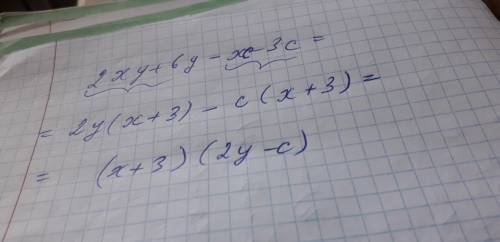 2xy+6y-xc-3c=
= 2y(x+3) - c(x+3) =
= (x+3)(2y-c)